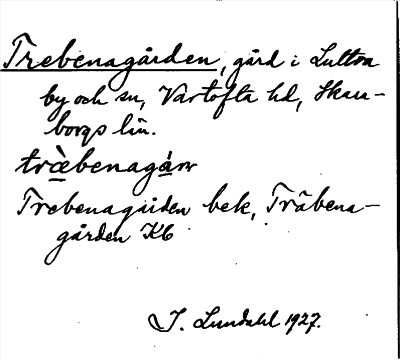 Trebenagården, gård i Luttra
by och sn, Vartofta hd, Skara-
borgs län.
trä̀benagá̱rn
Trebenagården bek, Träbena-
gården Kb
I. Lundahl 1927.